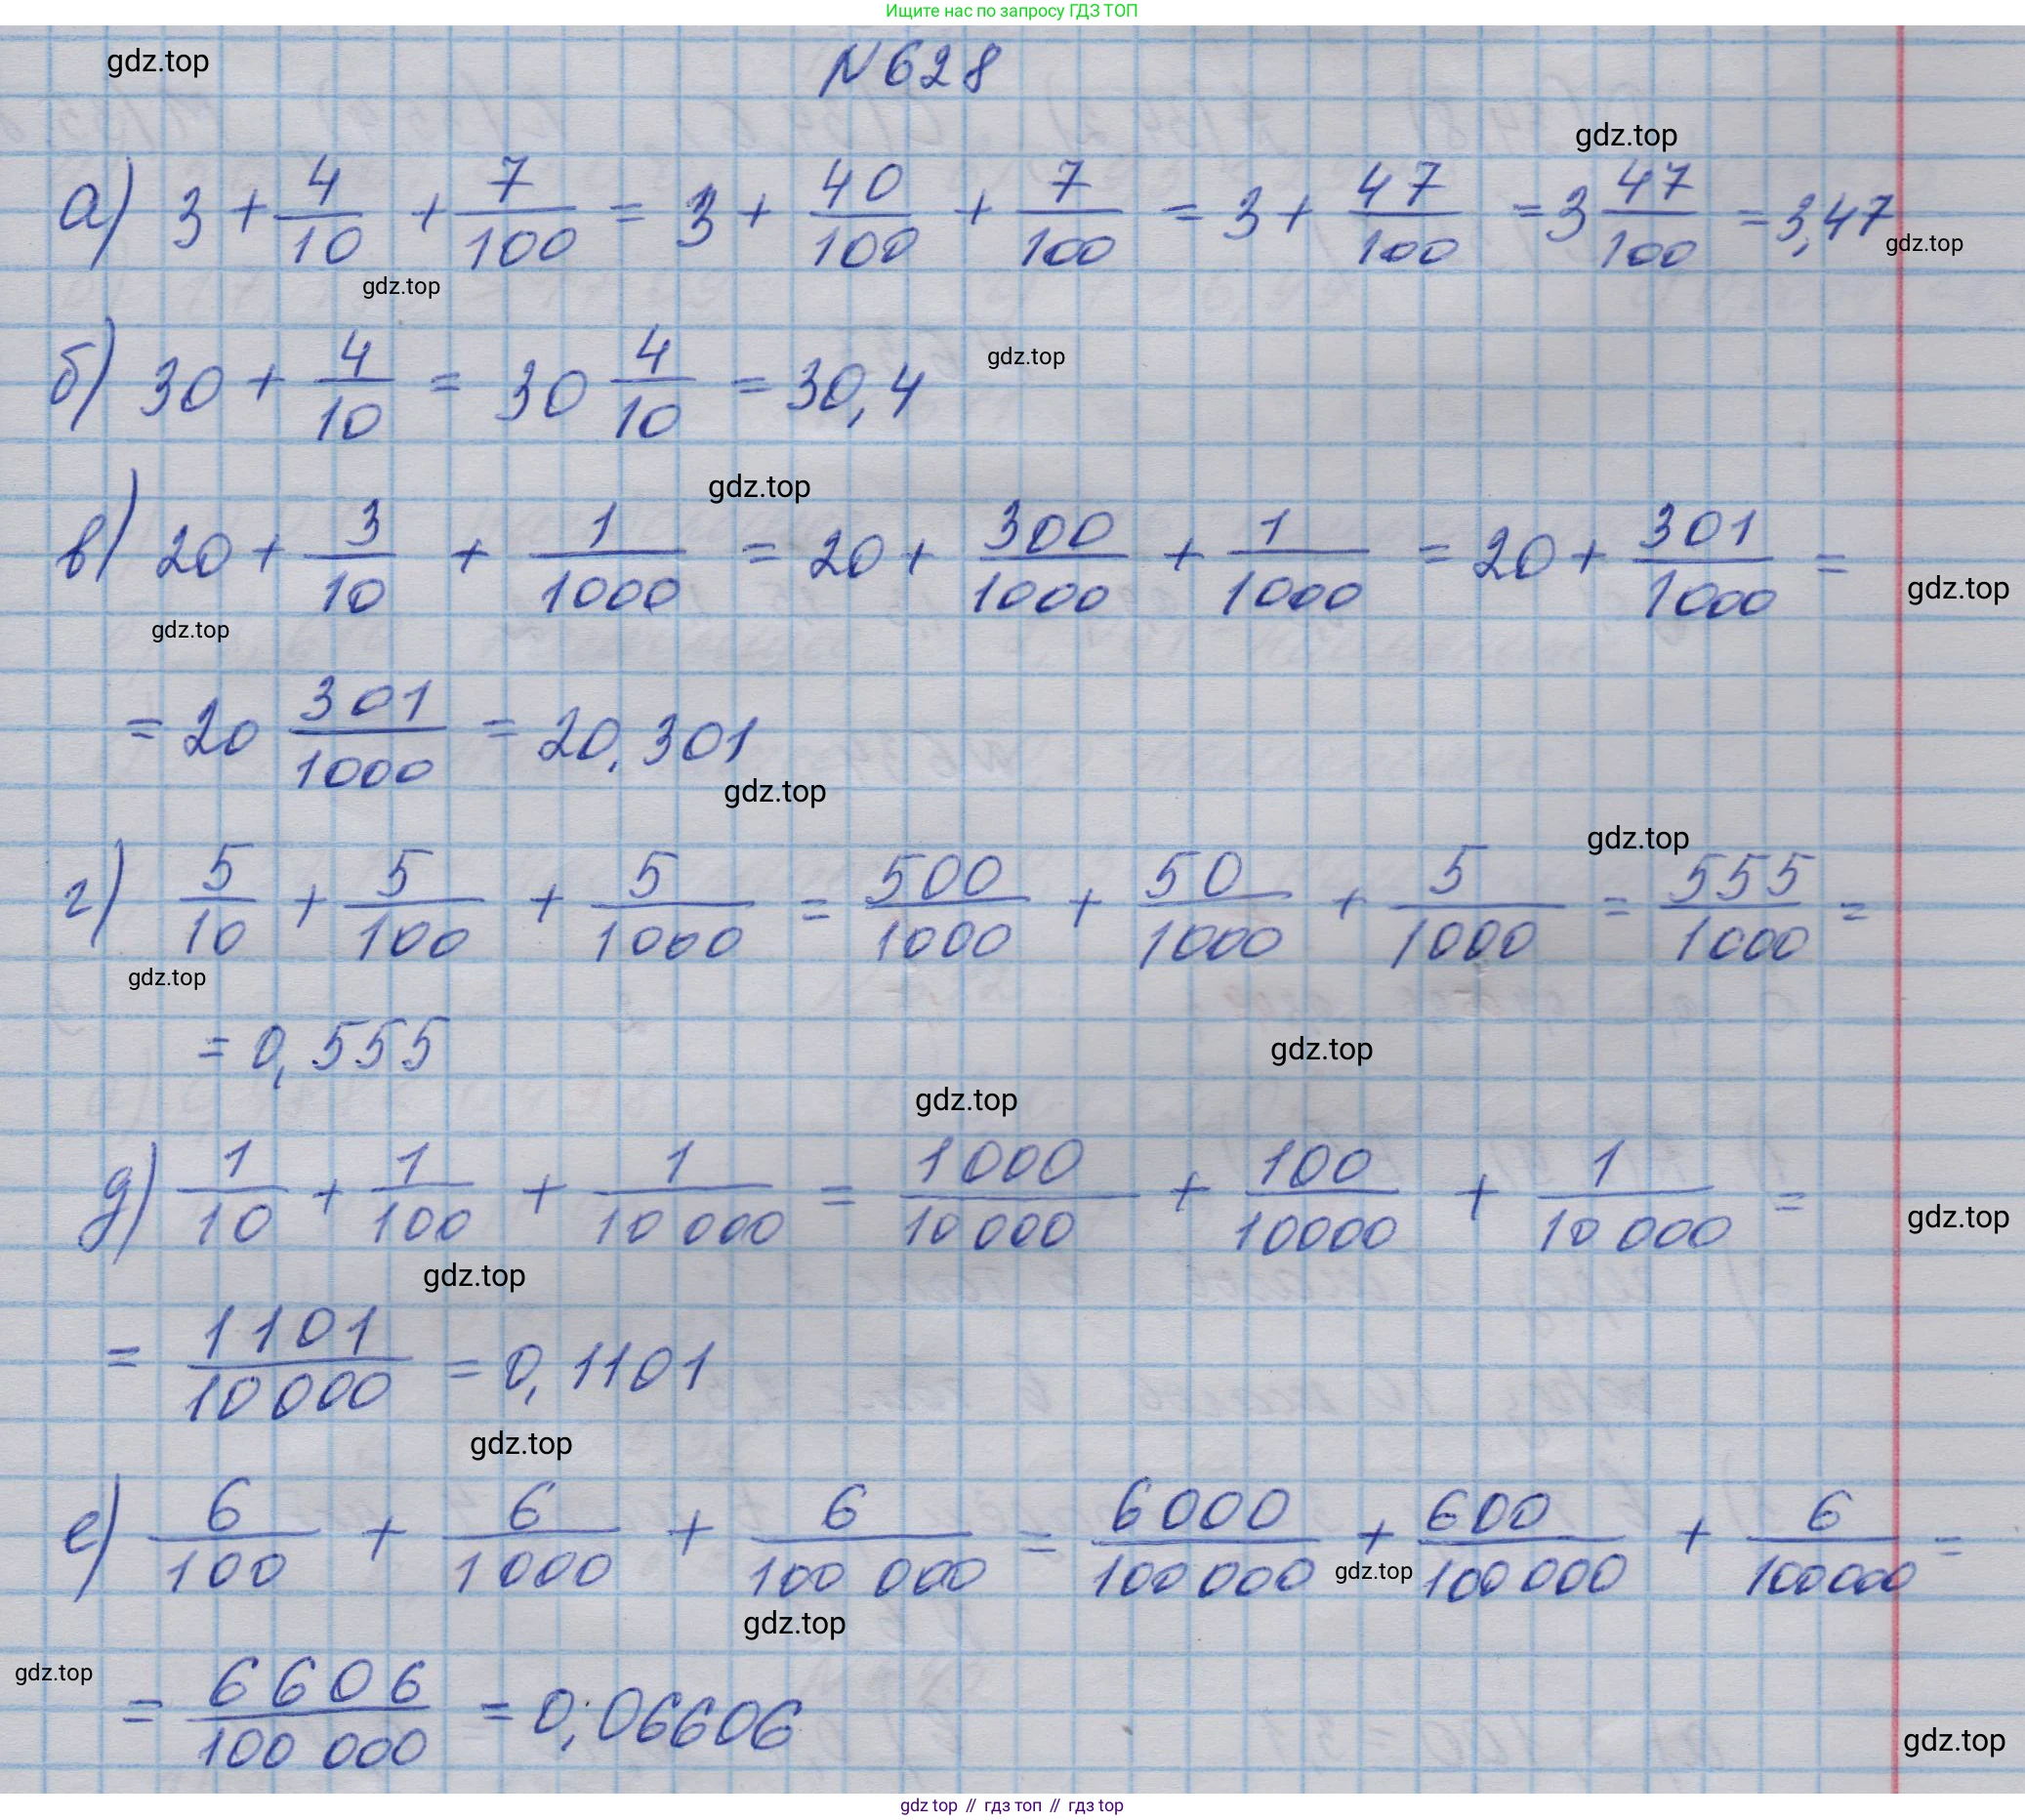 Ищите нас по запросу ГДЗ ТОП
gdz.top
N628
gdz.top
а) 3 + 4/10 + 7/100 = 3 + 40/100 + 7/100 = 3 + 47/100 = 3 47/100 = 3,47
gdz.top
gdz.top
б) 30 + 4/10 = 30 4/10 = 30,4
gdz.top
gdz.top
в) 20 + 3/10 + 1/1000 = 20 + 300/1000 + 1/1000 = 20 + 301/1000 =
gdz.top
gdz.top
= 20 301/1000 = 20,301
gdz.top
gdz.top
г) 5/10 + 5/100 + 5/1000 = 500/1000 + 50/1000 + 5/1000 = 555/1000 =
gdz.top
= 0,555
gdz.top
gdz.top
д) 1/10 + 1/100 + 1/10 000 = 1000/10 000 + 100/10000 + 1/10 000 =
gdz.top
gdz.top
= 1101/10 000 = 0,1101
gdz.top
е) 6/100 + 6/1000 + 6/100 000 = 6000/100 000 + 600/100 000 + 6/100 000 =
gdz.top
gdz.top
gdz.top
= 6606/100 000 = 0,06606
gdz.top
gdz top // гдз топ // гдз top